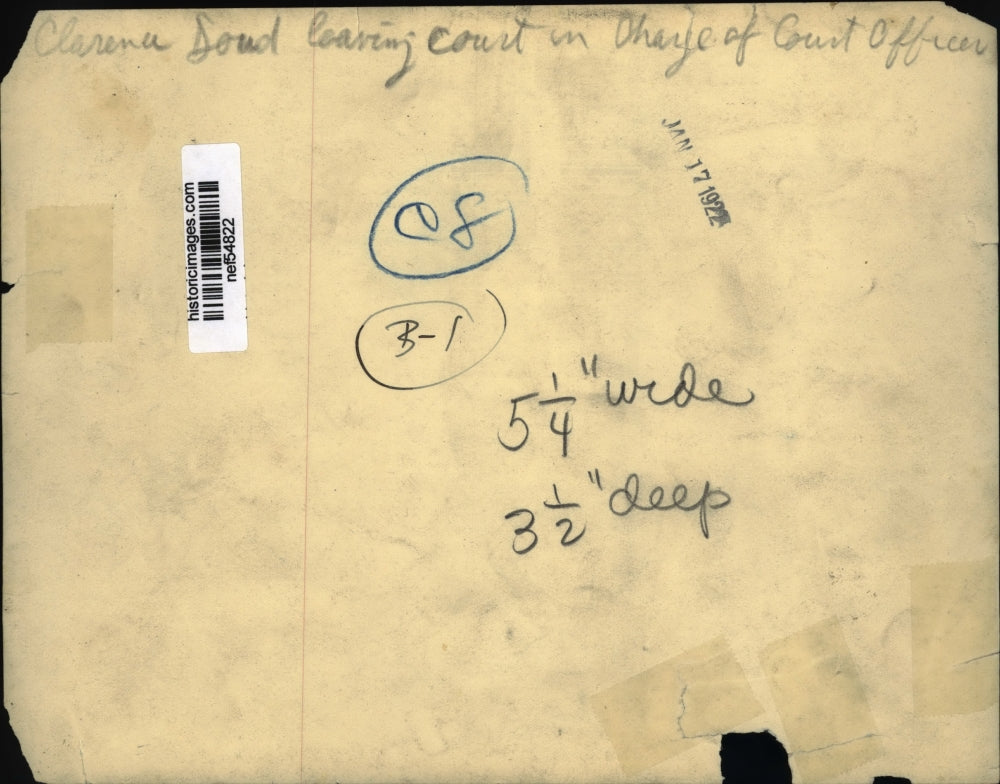 Clarence Doud leaving court in Charge of Court Officer
JAN 17 1922
historicimages.com
nef54822
B-1
5 1/4" wide
3 1/2" deep